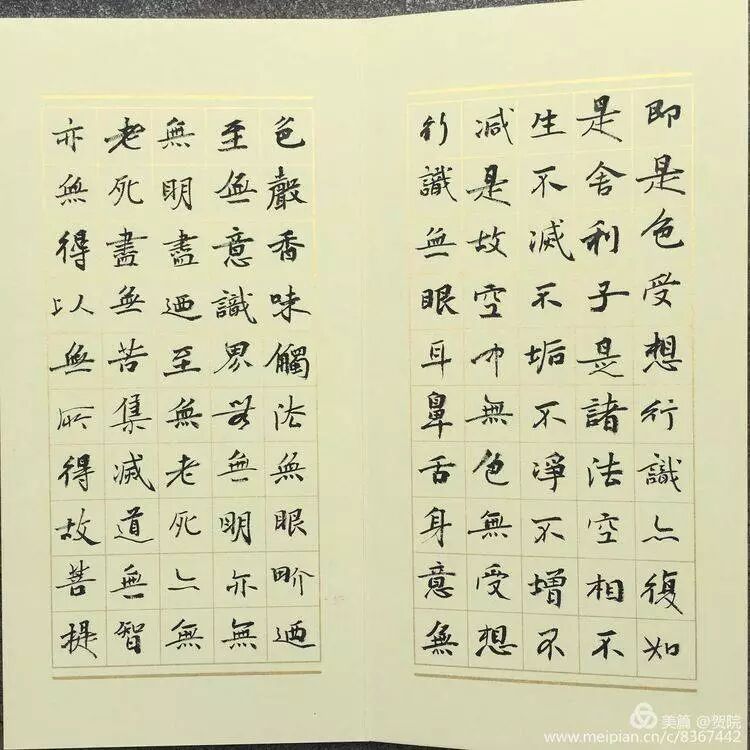 即是色受想行識亦復如
是舍利子是諸法空相不
生不滅不垢不淨不增不
減是故空中無色無受想
行識無眼耳鼻舌身意無
色聲香味觸法無眼界迺
至無意識界無無明亦無
無明盡迺至無老死亦無
老死盡無苦集滅道無智
亦無得以無所得故菩提
美篇 @贺院
www.meipian.cn/c/8367442